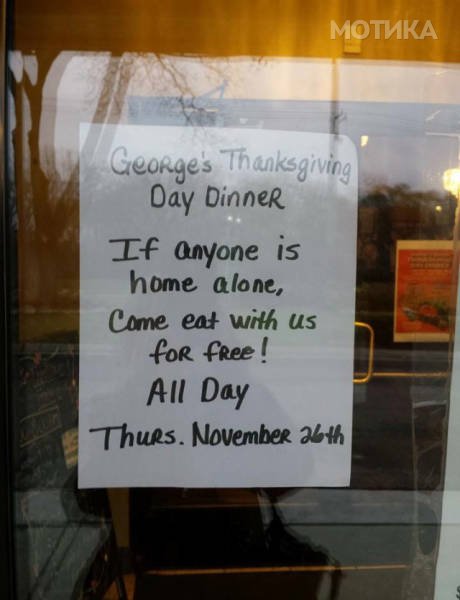 МОТИКА
George's Thanksgiving
Day Dinner
If anyone is
home alone,
Come eat with us
for free!
All Day
Thurs. November 26th